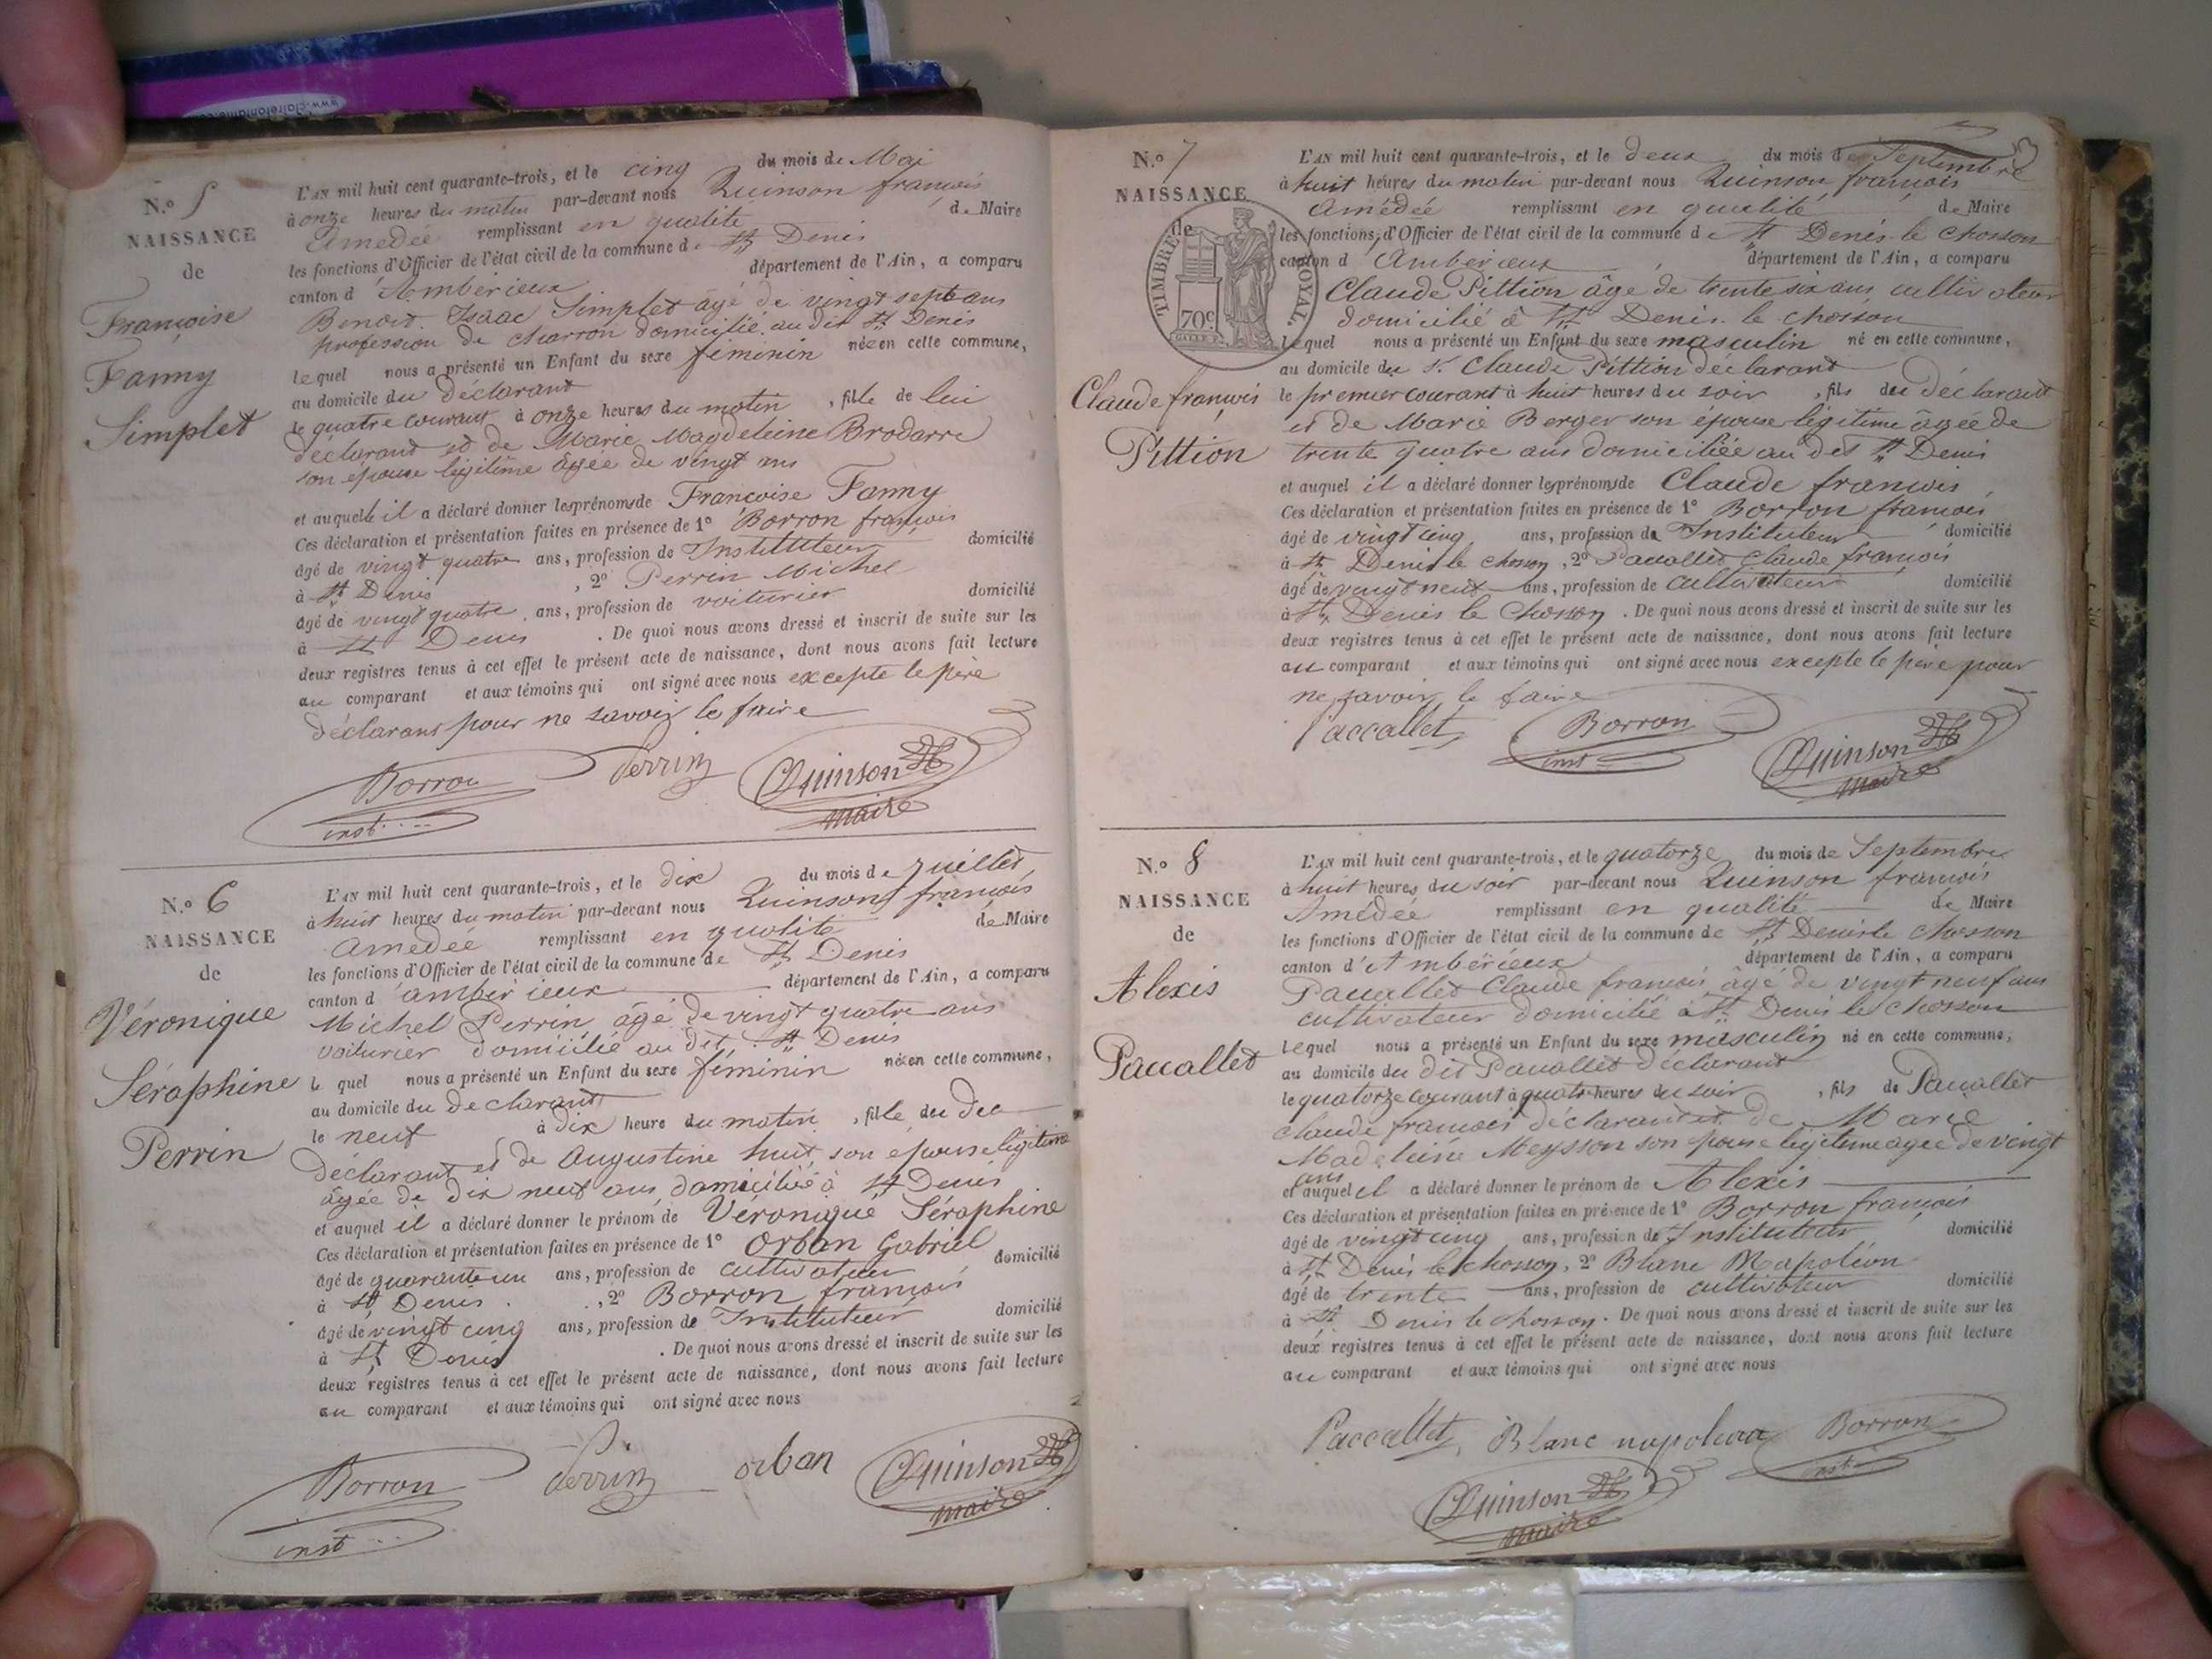 www.clairefontaine.co
N.º 5
NAISSANCE
de
Françoise
Fanny
Simplet
L'AN mil huit cent quarante-trois, et le cinq du mois de Mai
à onze heures du matin par-devant nous Quinson françois
Amedée remplissant en qualité de Maire
les fonctions d'Officier de l'état civil de la commune de St Denis
canton d'Ambérieux département de l'Ain, a comparu
Benoit Isaac Simplet âgé de vingt sept ans
profession de charron domicilié au dit St Denis
lequel nous a présenté un Enfant du sexe féminin née en cette commune,
au domicile du déclarant
le quatre courant à onze heures du matin, fille de lui
déclarant et de Marie Magdeleine Brodarre
son épouse légitime âgée de vingt ans
et auquelle il a déclaré donner les prénoms de Françoise Fanny
Ces déclaration et présentation faites en présence de 1º Borron françois
âgé de vingt quatre ans, profession de Instituteur domicilié
à St Denis, 2º Perrin Michel
âgé de vingt quatre ans, profession de voiturier domicilié
à St Denis. De quoi nous avons dressé et inscrit de suite sur les
deux registres tenus à cet effet le présent acte de naissance, dont nous avons fait lecture
au comparant et aux témoins qui ont signé avec nous excepte le père
déclarant pour ne savoir le faire
Borron Perrin Quinson
inst maire
N.º 6
NAISSANCE
de
Véronique
Séraphine
Perrin
L'AN mil huit cent quarante-trois, et le dix du mois de juillet
à huit heures du matin par-devant nous Quinson françois
Amedée remplissant en qualité de Maire
les fonctions d'Officier de l'état civil de la commune de St Denis
canton d'ambérieux département de l'Ain, a comparu
Michel Perrin âgé de vingt quatre ans
voiturier domicilié au dit St Denis
le quel nous a présenté un Enfant du sexe féminin née en cette commune,
au domicile du déclarant
le neuf à dix heure du matin, fille du dec
déclarant et de Augustine huit son épouse légitime
âgée de dix neuf ans domiciliée à St Denis
et auquel il a déclaré donner le prénom de Véronique Séraphine
Ces déclaration et présentation faites en présence de 1º Orban Gabriel
âgé de quarante un ans, profession de cultivateur domicilié
à St Denis, 2º Borron françois
âgé de vingt cinq ans, profession de Instituteur domicilié
à St Denis. De quoi nous avons dressé et inscrit de suite sur les
deux registres tenus à cet effet le présent acte de naissance, dont nous avons fait lecture
au comparant et aux témoins qui ont signé avec nous
Borron Perrin orban Quinson
inst maire
N.º 7
NAISSANCE
de
TIMBRE ROYAL.
70c
Claude françois
Pittion
L'AN mil huit cent quarante-trois, et le deux du mois de Septembre
à huit heures du matin par-devant nous Quinson françois
Amédée remplissant en qualité de Maire
les fonctions d'Officier de l'état civil de la commune de St Denis le Chosson
canton d'Ambérieux département de l'Ain, a comparu
Claude Pittion âgé de trente six ans cultivateur
domicilié à St Denis le chosson
Lequel nous a présenté un Enfant du sexe masculin né en cette commune,
au domicile du s. Claude Pittion déclarant
le premier courant à huit heures du soir, fils du déclarant
et de Marie Berger son épouse légitime âgée de
trente quatre ans domiciliée au dit St Denis
et auquel il a déclaré donner les prénoms de Claude françois
Ces déclaration et présentation faites en présence de 1º Borron françois
âgé de vingt cinq ans, profession de Instituteur domicilié
à St Denis le chosson, 2º Paccallet Claude françois
âgé de vingt neuf ans, profession de cultivateur domicilié
à St Denis le Chosson. De quoi nous avons dressé et inscrit de suite sur les
deux registres tenus à cet effet le présent acte de naissance, dont nous avons fait lecture
au comparant et aux témoins qui ont signé avec nous excepte le père pour
ne savoir le faire
Paccallet Borron Quinson
inst maire
N.º 8
NAISSANCE
de
Alexis
Paccallet
L'AN mil huit cent quarante-trois, et le quatorze du mois de Septembre
à huit heures du soir par-devant nous Quinson françois
Amédée remplissant en qualité de Maire
les fonctions d'Officier de l'état civil de la commune de St Denis le Chosson
canton d'Ambérieux département de l'Ain, a comparu
Paccallet Claude françois âgé de vingt neuf ans
cultivateur domicilié à St Denis le Chosson
Lequel nous a présenté un Enfant du sexe masculin né en cette commune,
au domicile du dit Paccallet déclarant
le quatorze courant à quatre heures du soir, fils de Paccallet
Claude françois déclarant et de Marie
Madeleine Meysson son épouse légitime agée de vingt
ans
et auquel il a déclaré donner le prénom de Alexis
Ces déclaration et présentation faites en présence de 1º Borron françois
âgé de vingt cinq ans, profession de Instituteur domicilié
à St Denis le Chosson, 2º Blanc Napoléon
âgé de trente ans, profession de cultivateur domicilié
à St Denis le chosson. De quoi nous avons dressé et inscrit de suite sur les
deux registres tenus à cet effet le présent acte de naissance, dont nous avons fait lecture
au comparant et aux témoins qui ont signé avec nous
Paccallet Blanc napoleon Borron
inst
Quinson
maire